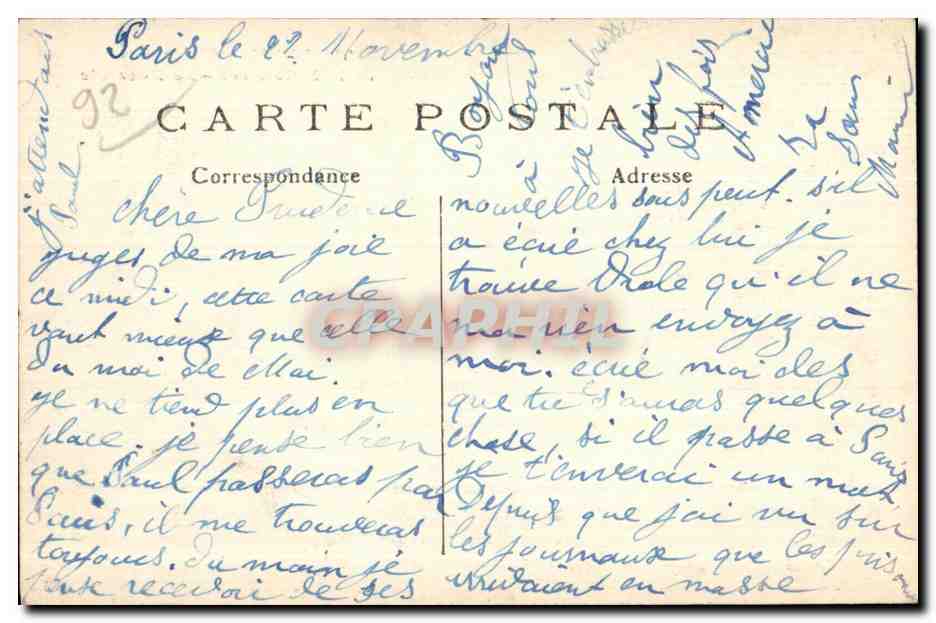 Paris le 22 Novembre
92
CARTE POSTALE
Correspondance
Adresse
chère
juges de ma joie
ce midi, cette carte
vaut mieux que celle
du moi de Mai.
je ne tiend plus en
place. je pense bien
que Paul passeras par
Paris, il me trouveras
toujours. du moin je
pense recevoir de ses
nouvelles sous peut. s'il
a écrie chez lui je
trouve drole qu'il ne
ma rien envoyez à
moi. écrie moi des
que tu s'auras quelques
chose, si il passe à Paris
je t'enverai un mot
Depuis que j'ai vu sur
les journaux que les prison
arrivaient en masse
j'attendais
Paul.
à vous
je t'embrasse
bien
des fois
Amercie
Ta
Sœur
CPAPHIL